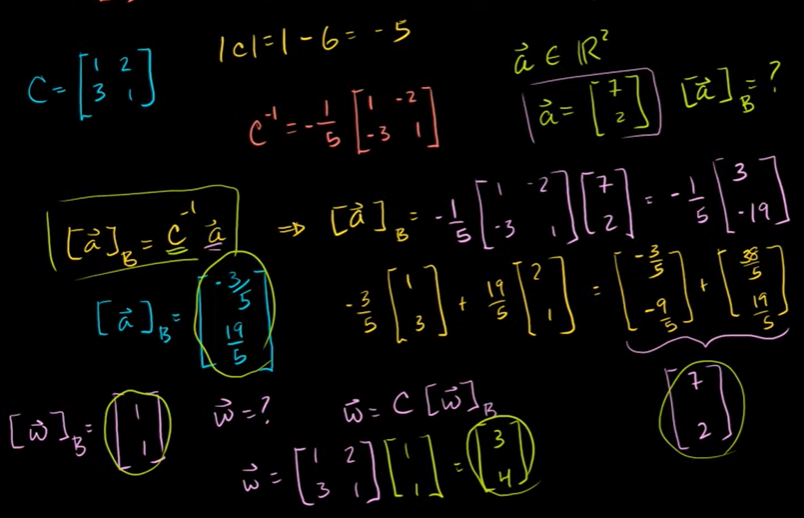 C = [1 2; 3 1]
|C| = 1 - 6 = -5
C⁻¹ = -1/5 [1 -2; -3 1]
a⃗ ∈ ℝ²
a⃗ = [7; 2] [a⃗]_B = ?
[a⃗]_B = C⁻¹ a⃗ ⇒ [a⃗]_B = -1/5 [1 -2; -3 1] [7; 2] = -1/5 [3; -19]
[a⃗]_B = [-3/5; 19/5]
-3/5 [1; 3] + 19/5 [2; 1] = [-3/5; -9/5] + [38/5; 19/5]
[7; 2]
[w⃗]_B = [1; 1] w⃗ = ? w⃗ = C [w⃗]_B
w⃗ = [1 2; 3 1] [1; 1] = [3; 4]